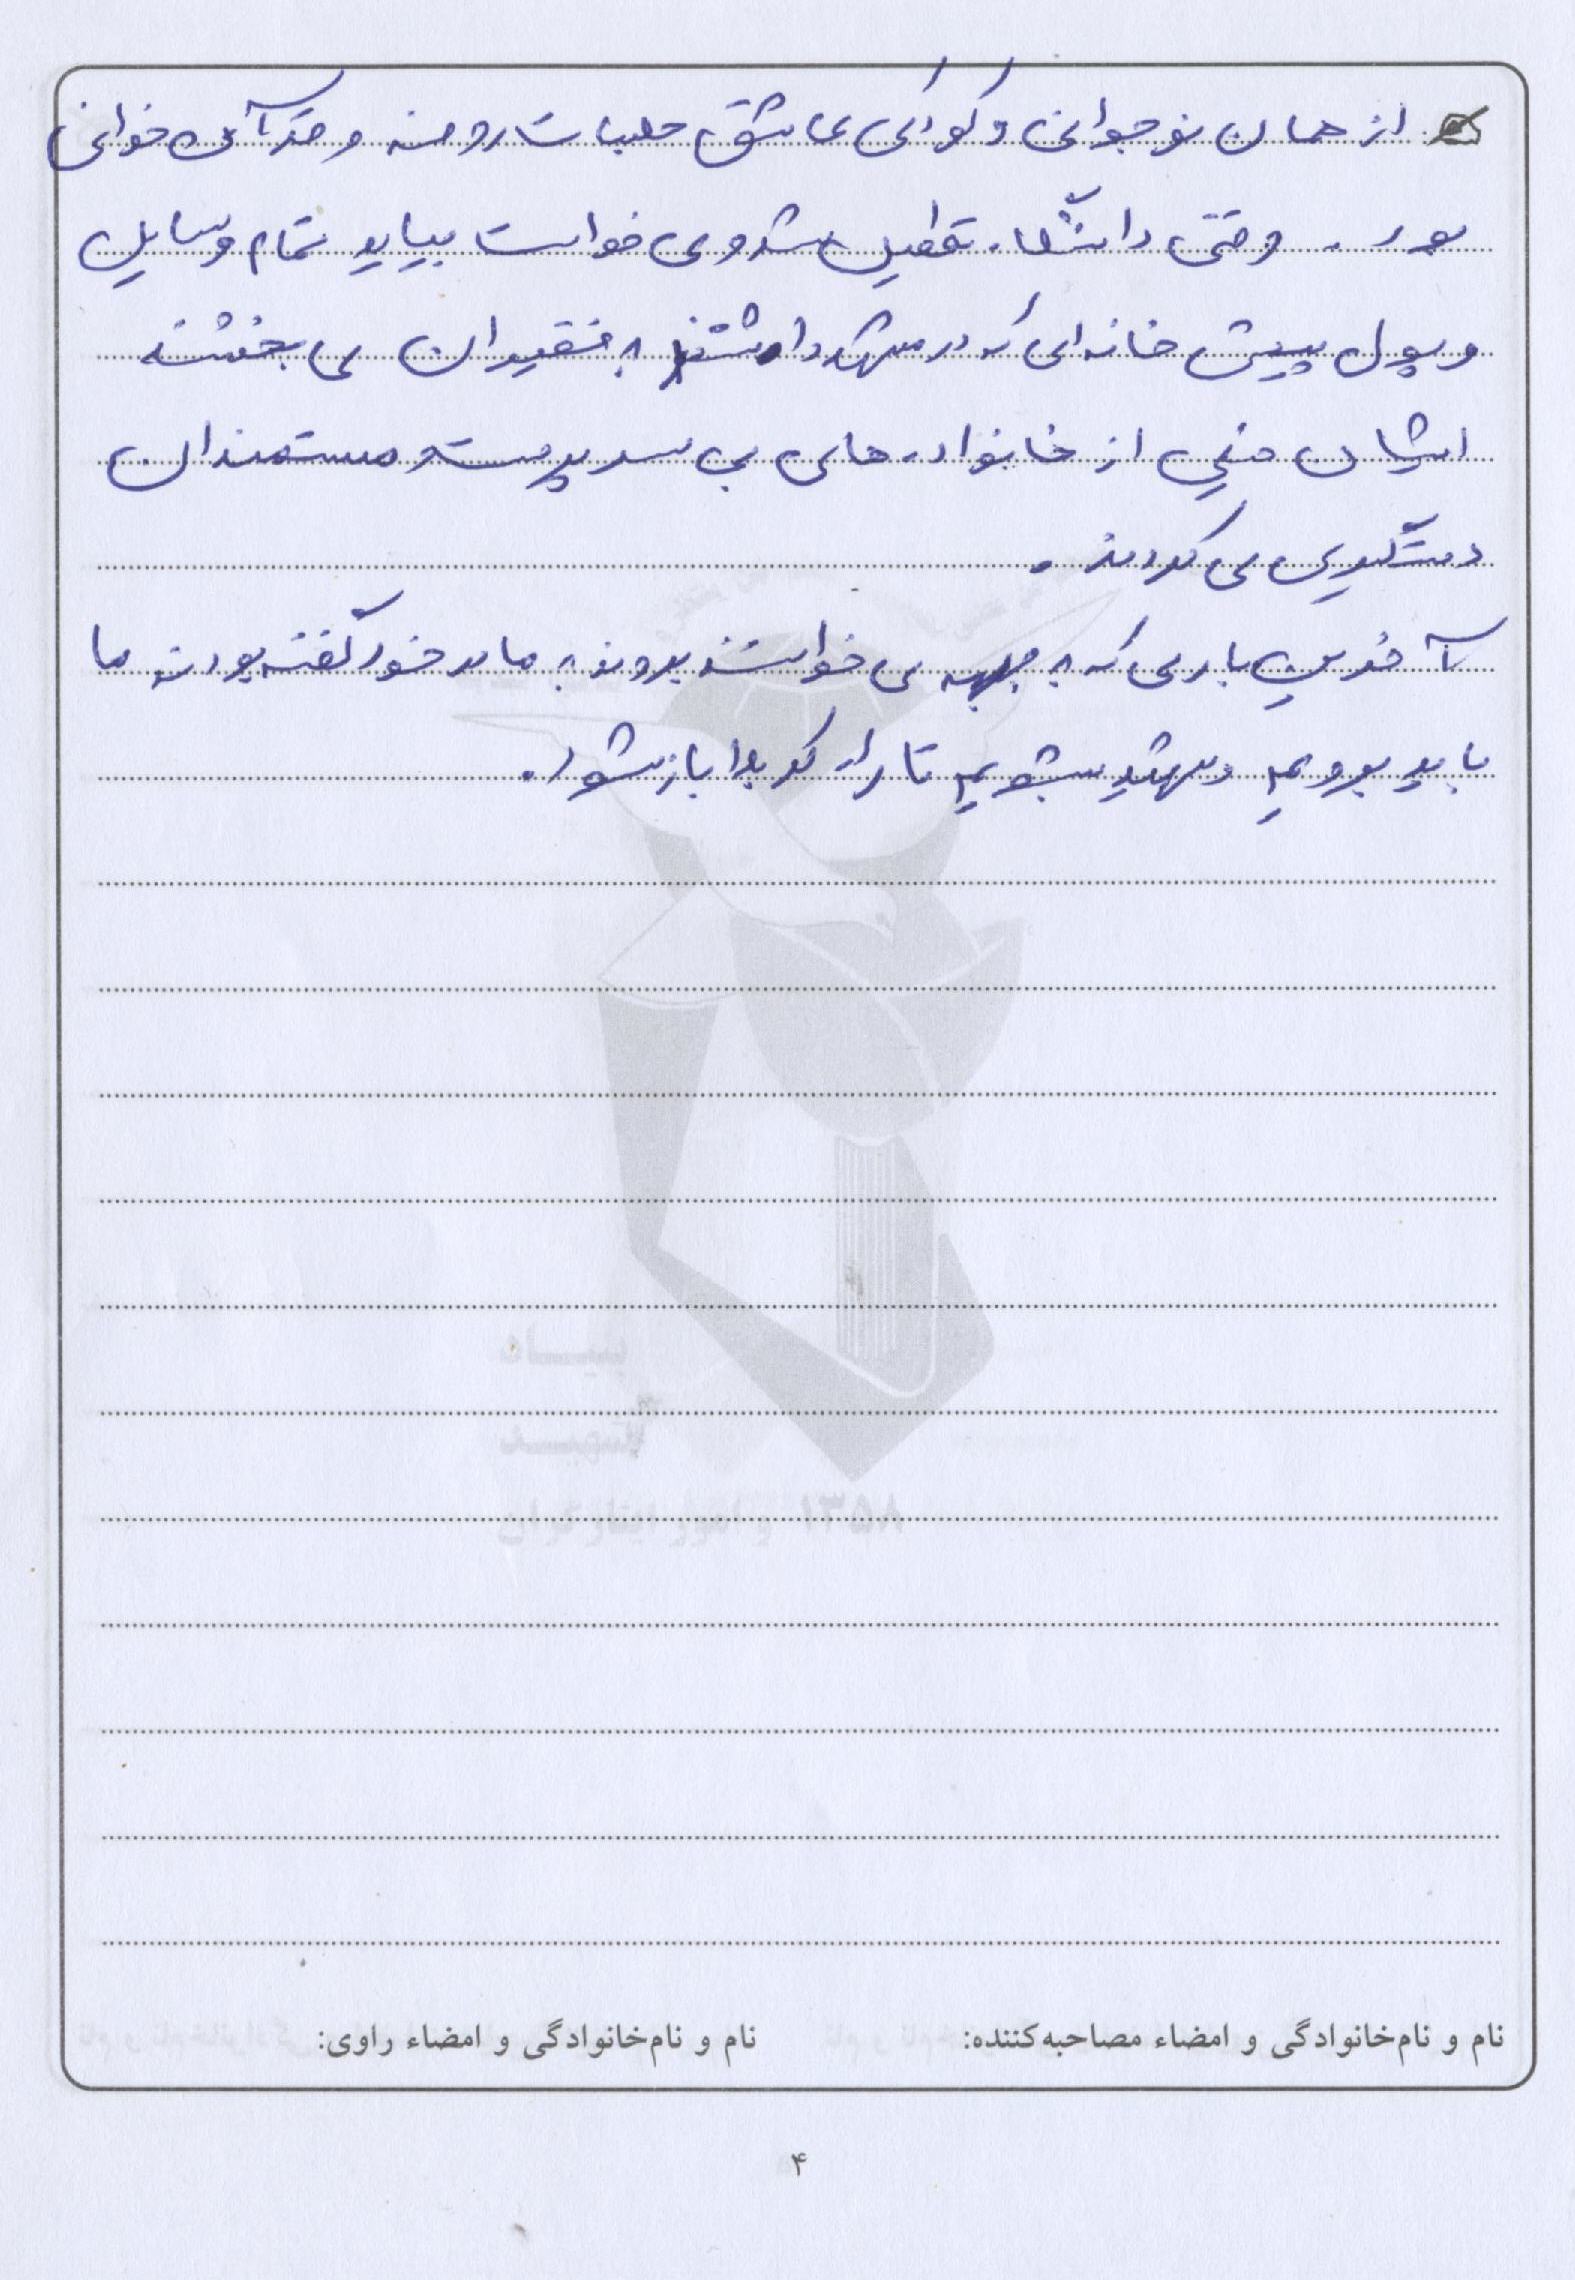 از همان نوجوانی و کودکی عاشق جلسات روضه و قرآن خوانی
بود. وقتی دانشگاه تعطیل میشد و می خواست بیاید تمام وسایل
و پول پیش خانه ای که در مشهد داشتند به فقیران می بخشند
ایشان خیلی از خانواده های بی سرپرست و مستمندان
دستگیری می کردند.
آخرین باری که به جبهه می خواستند بروند به مادر خود گفته بودند ما
باید برویم و شهید بشویم تا راه کربلا باز شود.
۱۳۵۸ و امور ایثارگران
نام و نام‌خانوادگی و امضاء مصاحبه‌کننده: نام و نام‌خانوادگی و امضاء راوی:
۴